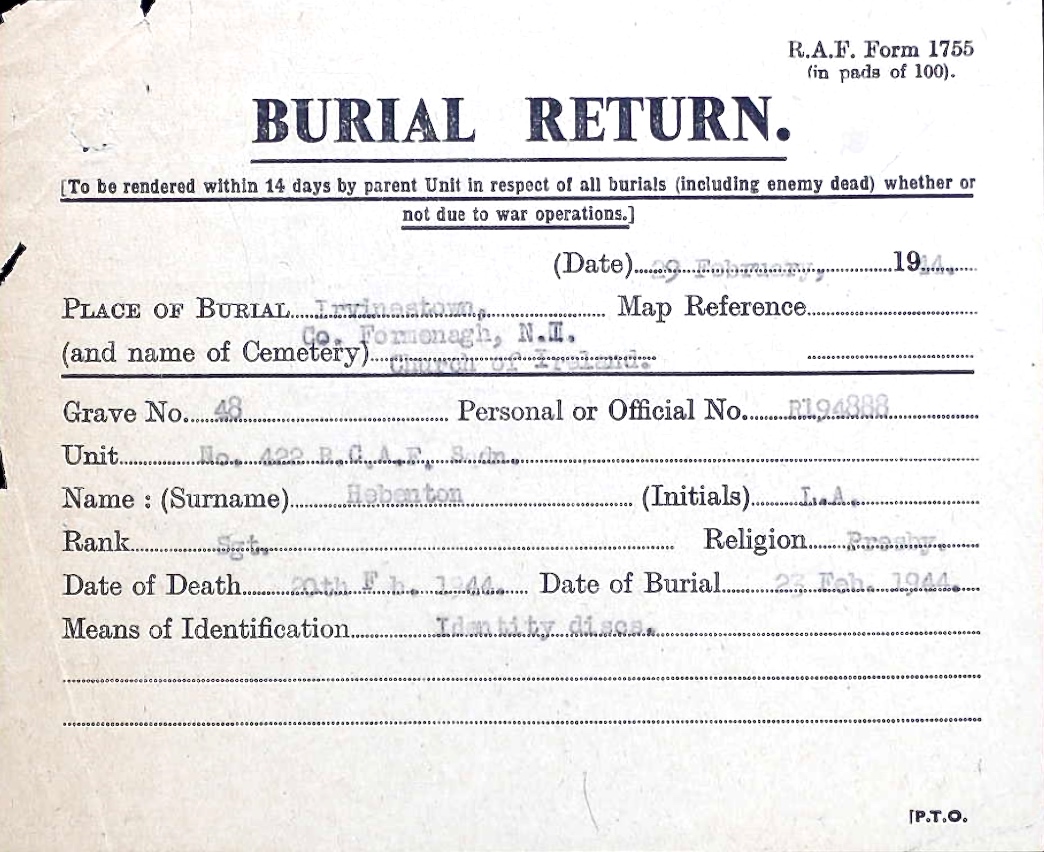 R.A.F. Form 1755
(in pads of 100).
BURIAL RETURN.
[To be rendered within 14 days by parent Unit in respect of all burials (including enemy dead) whether or
not due to war operations.]
(Date) 29 February, 1944.
PLACE OF BURIAL Irvinestown, Map Reference
Co. Fermenagh, N.I.
(and name of Cemetery) Church of Ireland.
Grave No. 48 Personal or Official No. R194888
Unit No. 422 R.C.A.F. Sqdn.
Name : (Surname) Hebenton (Initials) L.A.
Rank Sgt. Religion Presby.
Date of Death 20th Feb. 1944. Date of Burial 23 Feb. 1944.
Means of Identification Identity discs.
[P.T.O.